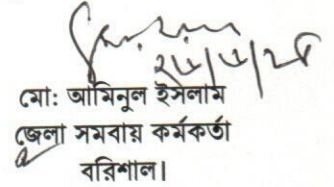 মো: আমিনুল ইসলাম
জেলা সমবায় কর্মকর্তা
বরিশাল।